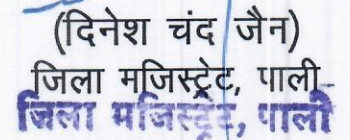 (दिनेश चंद जैन)
जिला मजिस्ट्रेट, पाली
जिला मजिस्ट्रेट, पाली